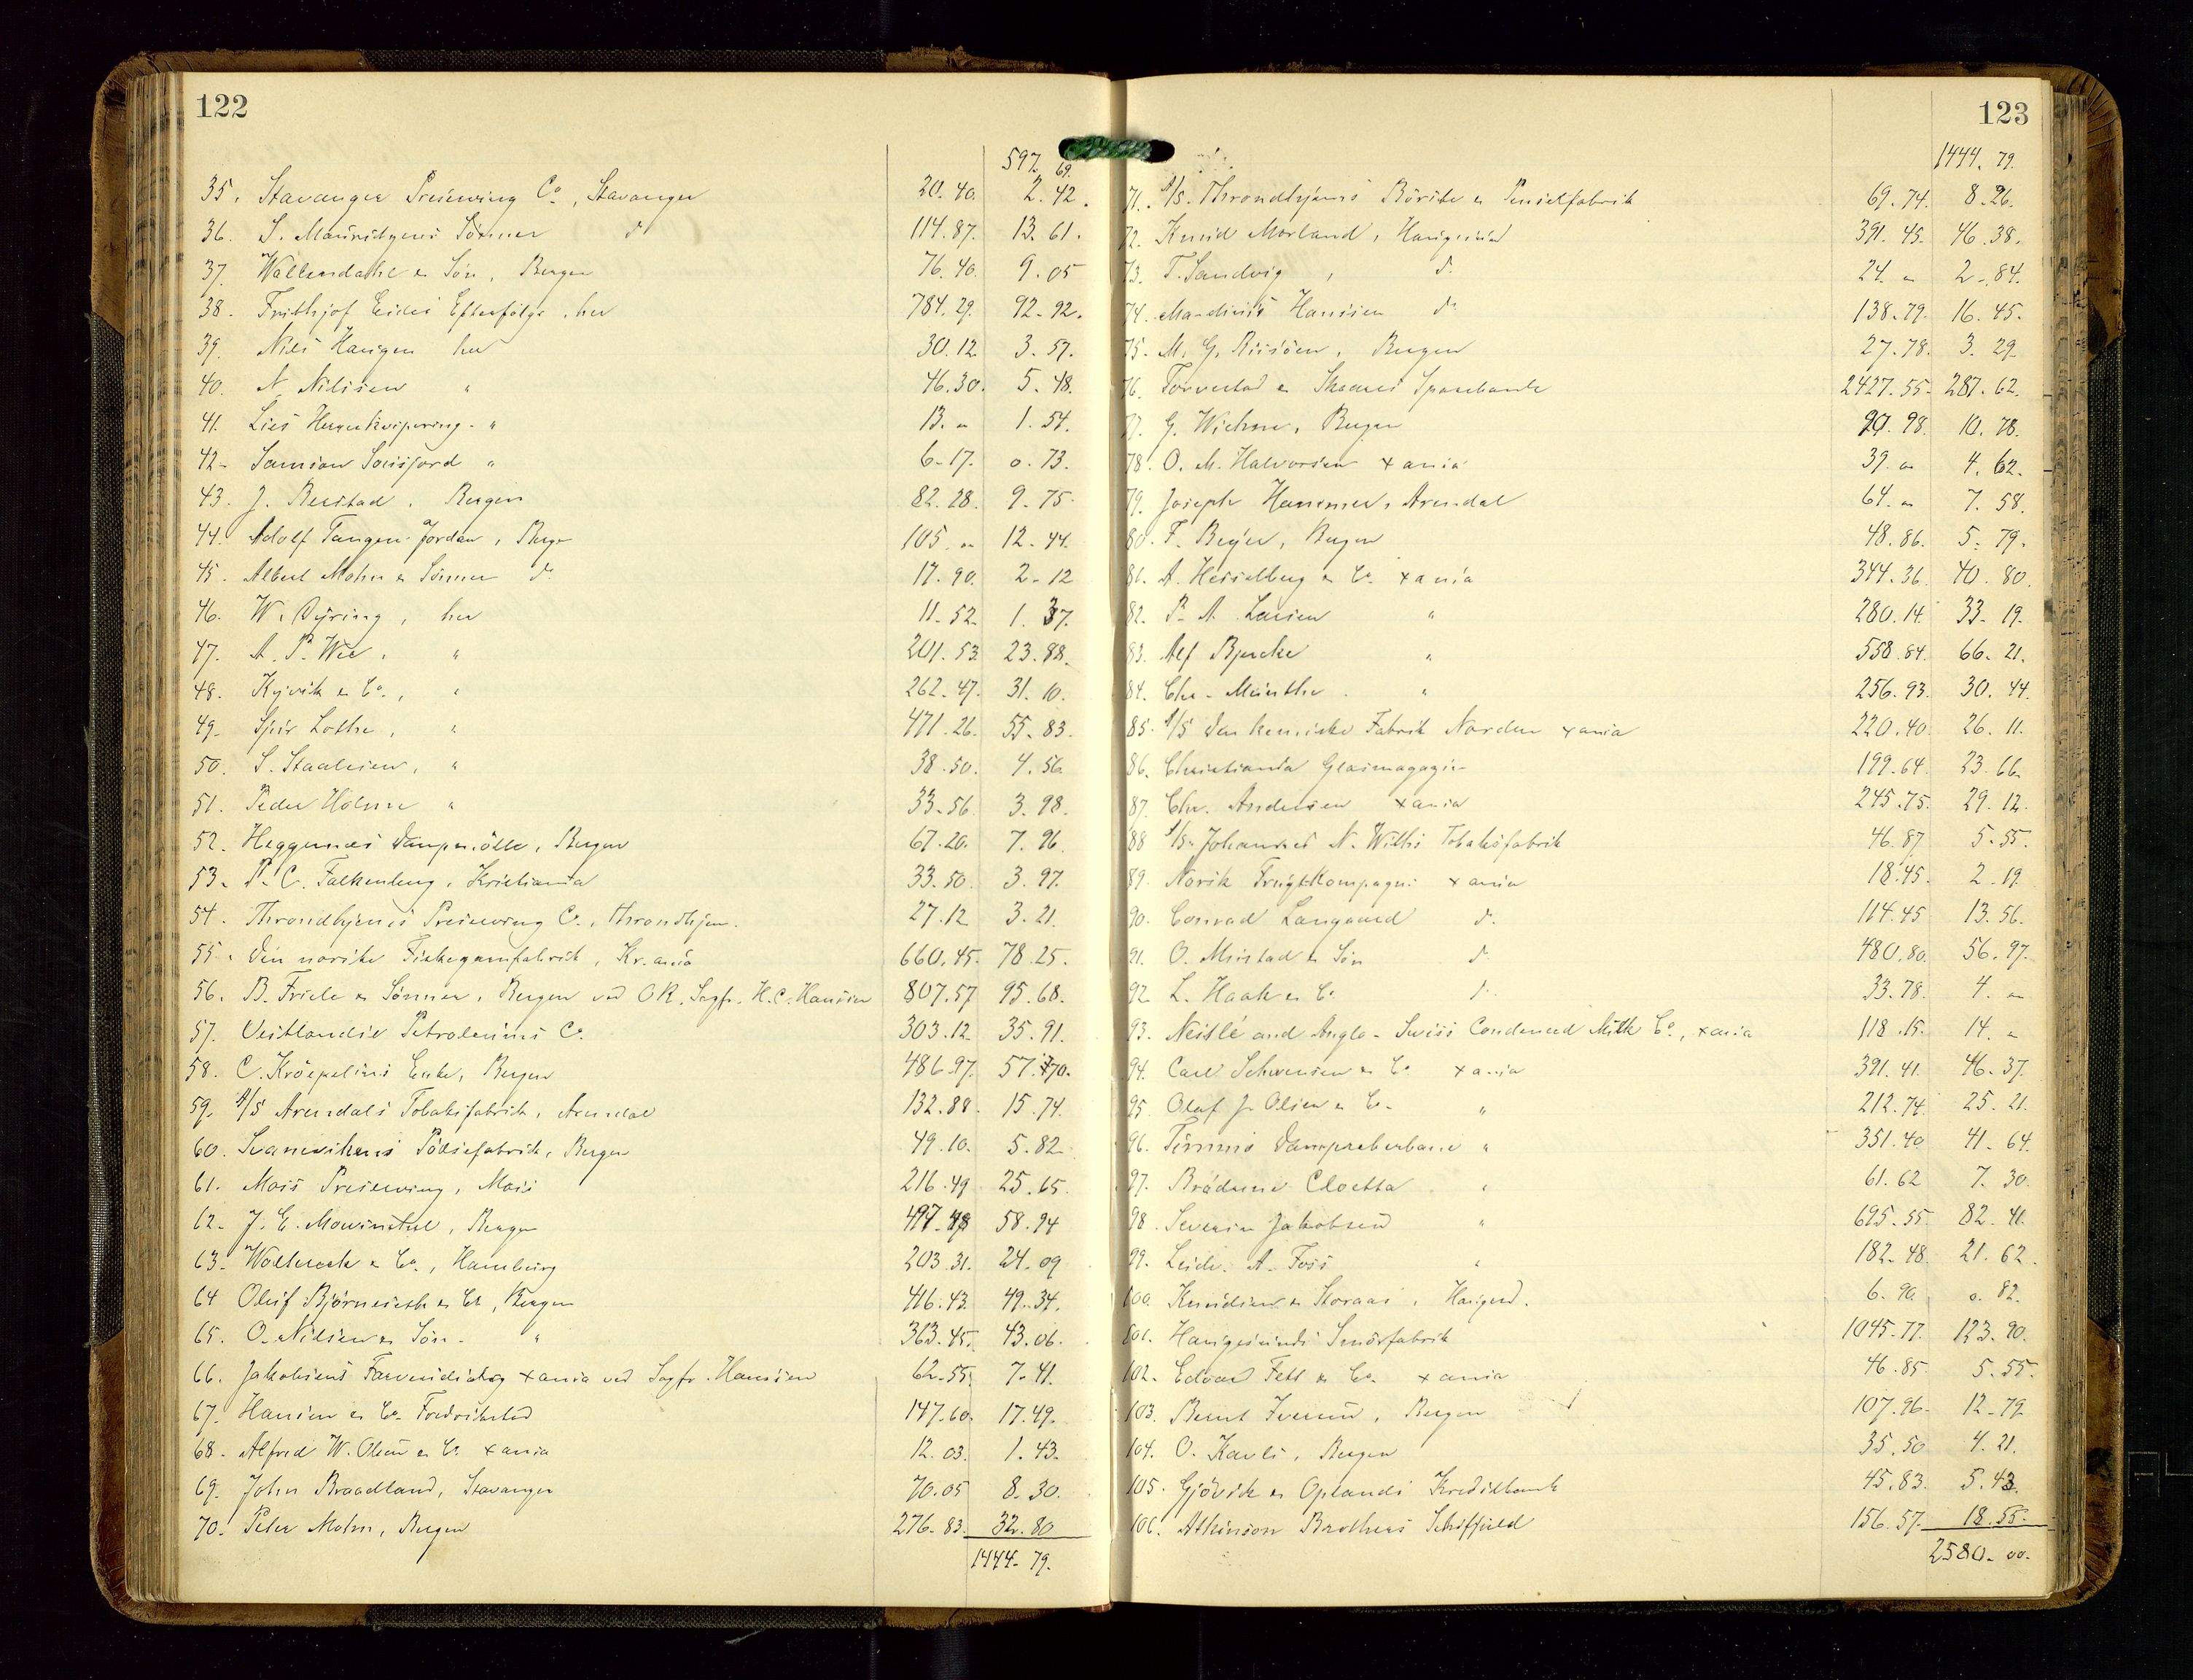 122
597. 69.
35. Stavanger Preserving Co, Stavanger 20.40. 2.42.
36. S. Mauritzens Sønner do 114.87. 13.61.
37. Wallendahl & Søn, Bergen 76.40. 9.05
38. Frithjof Eides Efterfølge. her 784.29. 92.92.
39. Nils Haugen her 30.12 3.57.
40. N. Nilssen " 46.30. 5.48.
41. Lies Herrekvipering - " 13. " 1.54.
42. Samson " 6.17. 0.73.
43. J. Restad, Bergen 82.28. 9.75.
44. Adolf Tangen Jordan, Berge 105. " 12.44.
45. Albert Mohn & Sønner do 17.90. 2.12
46. W. Dyring, her 11.52. 1.37.
47. A. P. Wee, " 201.53. 23.88.
48. Kyvik & Co., " 262.47. 31.10.
49. Sjur Lothe, " 471.26. 55.83.
50. S. Staalesen, " 38.50. 4.56
51. Peder Holme " 33.56 3.98.
52. Heggernes Dampmölle, Bergen 67.20. 7.96
53. P. C. Falkenberg, Kristiania 33.50. 3.97.
54. Throndhjems Preserving Co., Throndhjem. 27.12 3.21.
55. Den norske Fiskegarnfabrik, Kr.ania 660.45. 78.25.
56. B. Friele & Sønner, Bergen ved OR. Sagfr. H.C. Hansen 807.57 95.68.
57. Vestlandske Petroleums Co. 303.12. 35.91.
58. C. Kröepeliens Enke, Bergen 486.97. 57.70.
59. A/S Arendals Tobaksfabrik, Arendal 132.88. 15.74.
60. Svanevikens Pölsefabrik, Bergen 49.10. 5.82.
61. Moss Preserving, Moss 216.49 25.65.
62. J. E. Mowinckel, Bergen 497.48 58.94
63. & Co., Hamburg 203.31. 24.09
64 Oluf Björneseth & Co, Bergen 416.43. 49.34.
65. O. Nilsen & Søn. " 363.45. 43.06.
66. Jakobsens Farveindustry xania ved Sagfr. Hanssen 62.55. 7.41.
67. Hansen & Co. Fredrikstad 147.60. 17.49.
68. Alfred W. Olsen & Co xania 12.03. 1.43.
69. John Braadland, Stavanger 70.05 8.30.
70. Peter Mohn, Bergen 276.83. 32.80
1444.79.
123
1444.79.
71. A/S. Throndhjems Börste & Penselfabrik 69.74. 8.26.
72. Knud Morland, Haugesund 391.45. 46.38.
73. T. Sandvig, do. 24. " 2.84.
74. Mandius Hanssen do 138.79. 16.45.
75. M. G. Riisöen, Bergen 27.78. 3.29.
76. Torvestad & Skaares Sparebank 2427.55. 287.62.
77. G. Wichne, Bergen 90.98. 10.78.
78. O. M. Halvorsen xania 39. " 4.62.
79. Joseph Hammer, Arendal 64. " 7.58.
80. F. Beyer, Bergen 48.86. 5.79.
81. A. Hesselberg & Co. xania 344.36. 40.80.
82. P. A. Larsen " 280.14. 33.19.
83. Alf Bjercke " 558.84. 66.21.
84. Chr. Münthe. " 256.93. 30.44.
85. A/S Den kemiske Fabrik Norden xania 220.40. 26.11.
86. Christiania Glasmagazin 199.64. 23.66.
87. Chr. Andersen xania 245.75. 29.12.
88 A/S. Johannes N. Withs Tobaksfabrik 46.87 5.55.
89. Norsk Frugtkompagni xania 18.45. 2.19.
90. Conrad Langaard do. 114.45 13.56.
91. O. Mustad & Søn do 480.80. 56.97.
92. L. Haak & Co do. 33.78. 4. "
93. Nestlé and Anglo-Swiss Condensed Milk Co., xania 118.15. 14. "
94. Carl Schwensen & Co xania 391.41. 46.37.
95. Olaf J. Olsen & Co. " 212.74. 25.21.
96. " 351.40 41.64.
97. Brödrene Cloetta " 61.62 7.30.
98. Severin Jakobsen " 695.55. 82.41.
99. A. Foss " 182.48. 21.62.
100. Knudsen & Storaas, Haugesd. 6.90. 0.82.
101. Haugesunds Smörfabrik 1045.77. 123.90.
102. Edvar Fett & Co. xania 46.85. 5.55.
103. Bernt Iversen, Bergen 107.96. 12.79.
104. O. Kavli, Bergen 35.50 4.21.
105. Gjövik & Oplands Kreditbank 45.83. 5.43.
106. Atkinson Brothers Scheffield 156.57. 18.55.
2580.00.